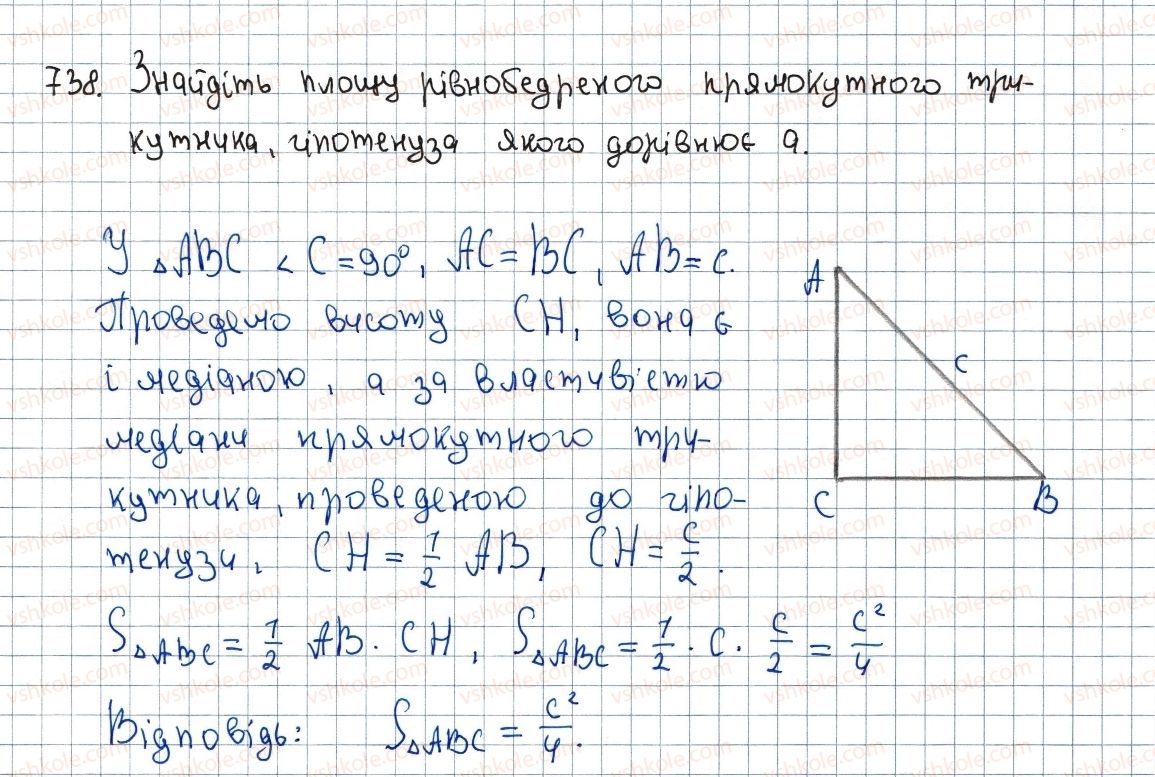 738. Знайдіть площу рівнобедреного прямокутного три-
кутника, гіпотенуза якого дорівнює а.
У △ABC < C = 90°, AC = BC, AB = c.
Проведемо висоту CH, вона є
і медіаною, а за властивістю
медіани прямокутного три-
кутника, проведеною до гіпо-
тенузи, CH = 1/2 AB, CH = c/2.
S△ABC = 1/2 AB · CH, S△ABC = 1/2 · c · c/2 = c²/4
Відповідь: S△ABC = c²/4.
A
c
C
B
vshkole.com